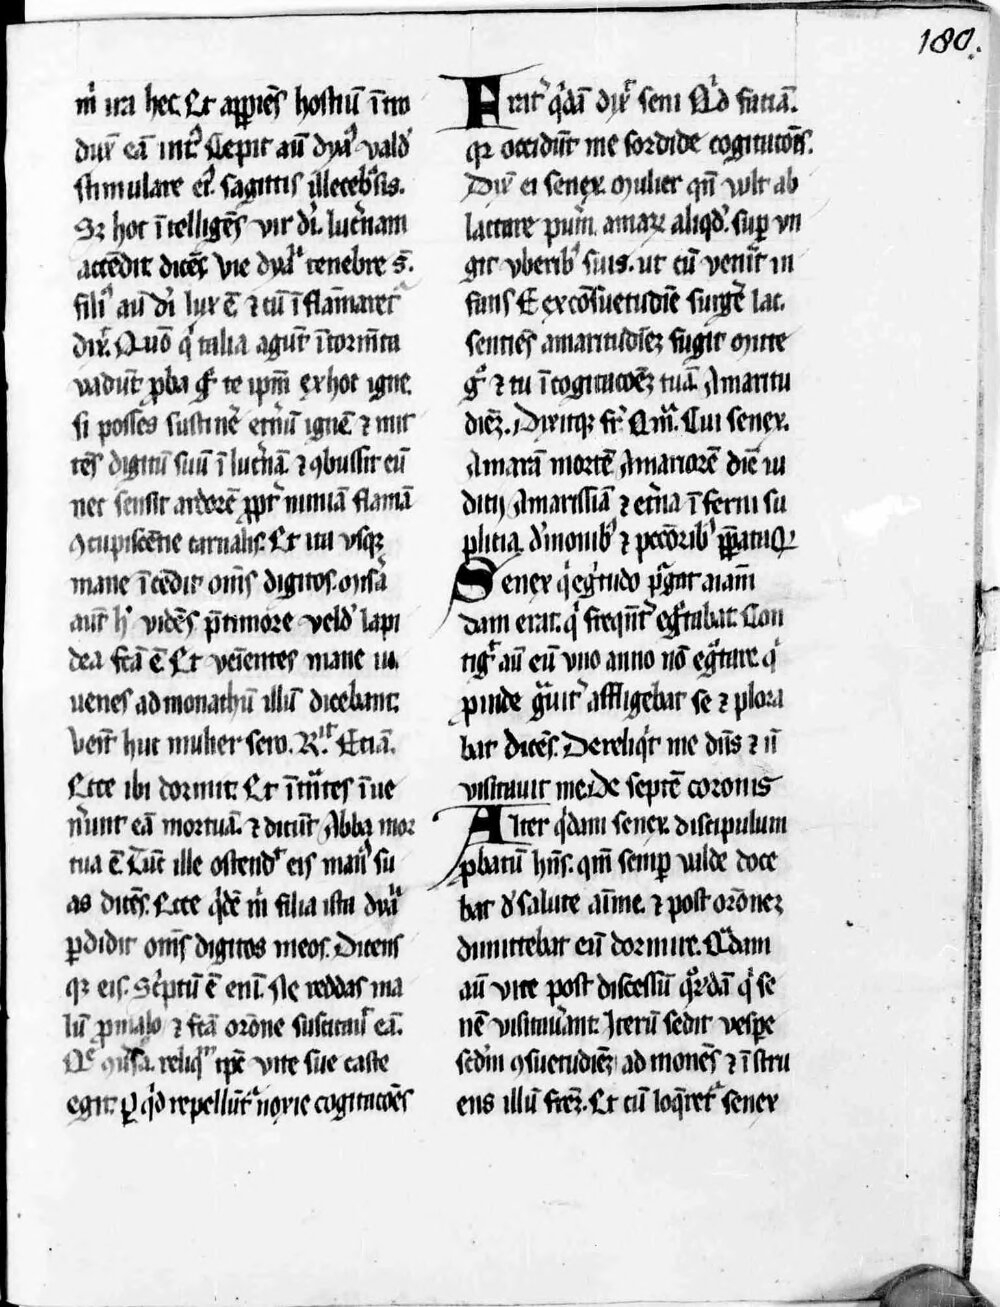 180.
m̄ ira hec. Et apꝑiēs hostiū ī tro
duẋ eā int᷒. Cepit aū dyaꝰ vald
stimulare eū sagittis illecebͤsis.
Sꝫ hoc ītelligēs vir dī. luc̄nam
accēdit dicēs Vie dyaͥ tenebre sͭ.
filiꝰ aū dī lux ē ⁊ cū īflāmaret᷑
dix̄. Quō q̇ talia agūt ītormta
vadūt ꝓba gͦ te ipm̄ ex hoc igne.
si posses sustinē etn̄ū ignē ⁊ mit
tēs digitū suū ī luc̄nā. ⁊ ꝯbussit eū
nec sensit ardorē ꝓpt᷑ nimiā flāmā
ꝯcupiscētie carnalis. Et ita vsqꝫ
mane īcēdit om̄s digitos. Misͣa
aūt hͨ vidēs p̄ timore veld lapi
dea fcā ē. Et veīentes mane iu
uenes ad monachū illū dicebant.
Venīt huc mulier sero. Rͭ. Etiā.
Ecce ibi dormit. Et ītͣntes īue
nērunt eā mortuā. ⁊ dicūt Abba mor
tua ē Tūc ille ostendͭ eis manꝰ su
as dicēs. Ecce qͥdē m̄ filia ista dyaͥ
ꝑdidit om̄s digitos meos. Dicens
qꝫ eis. Sc̄ptū ē eni. Ne reddas ma
lū ꝓ malo ⁊ fcā orōne suscitauͭ eā.
Qͤ ꝯūsa. reliqͫ tꝑe vite sue caste
egit. ꝑ qͥd repellūt᷑ noxie cogitacōēs
Frat᷑ qͥdā dix̄ seni Qͥd faciā.
qꝫ occidūt me sordide cogitacōēs.
Dix̄ ei senex. Mulier qn̄ vult ab
lactare puū. amarꝫ aliqͥd. suꝑ vn
git vberibꝰ suis. ut cū venīt in
fans Et ex cōsuetudīe surgē lac.
sentiēs amaritudīeꝫ fugit Mitte
gͦ ⁊ tu ī cogitacōeꝫ tuā. Amaritu
dīeꝫ. Dixitqꝫ fr̄ Qͣm. Cui senex.
Amarā mortē Amariorē diē iu
dicij Amarissīā ⁊ etn̄a īferni su
plicia. dꝰmonibꝰ ⁊ pccōribꝰ p̄ꝑatu Qͬ
Senex qͥ egͥtudo ꝑgūt aiam̄
dam erat. qͥ frequēt᷑ egͦtabat. Con
tigͭ aū eū vno anno nō egͦtare. qͥ
ꝓinde gͣuit᷑ affligebat se ⁊ plora
bat dicēs. Dereliqͥt me dn̄s ⁊ nō
visitauit me De septē coronis
Alter qͥdam senex. discipulum
ꝓbatū hn̄s. qm̄ semꝑ valde doce
bat dͤ salute aīme. ⁊ post orōneꝫ
dimittebat eū dormire. Qͥdam
aū vite post discessū qͥdā qͥ se
nē visitauant. Iterū sedit vespe
sedm̄ ꝯsuetudīeꝫ ad monēs ⁊ īstru
ens illū frēꝫ. Et cū loqͤret᷑ senex